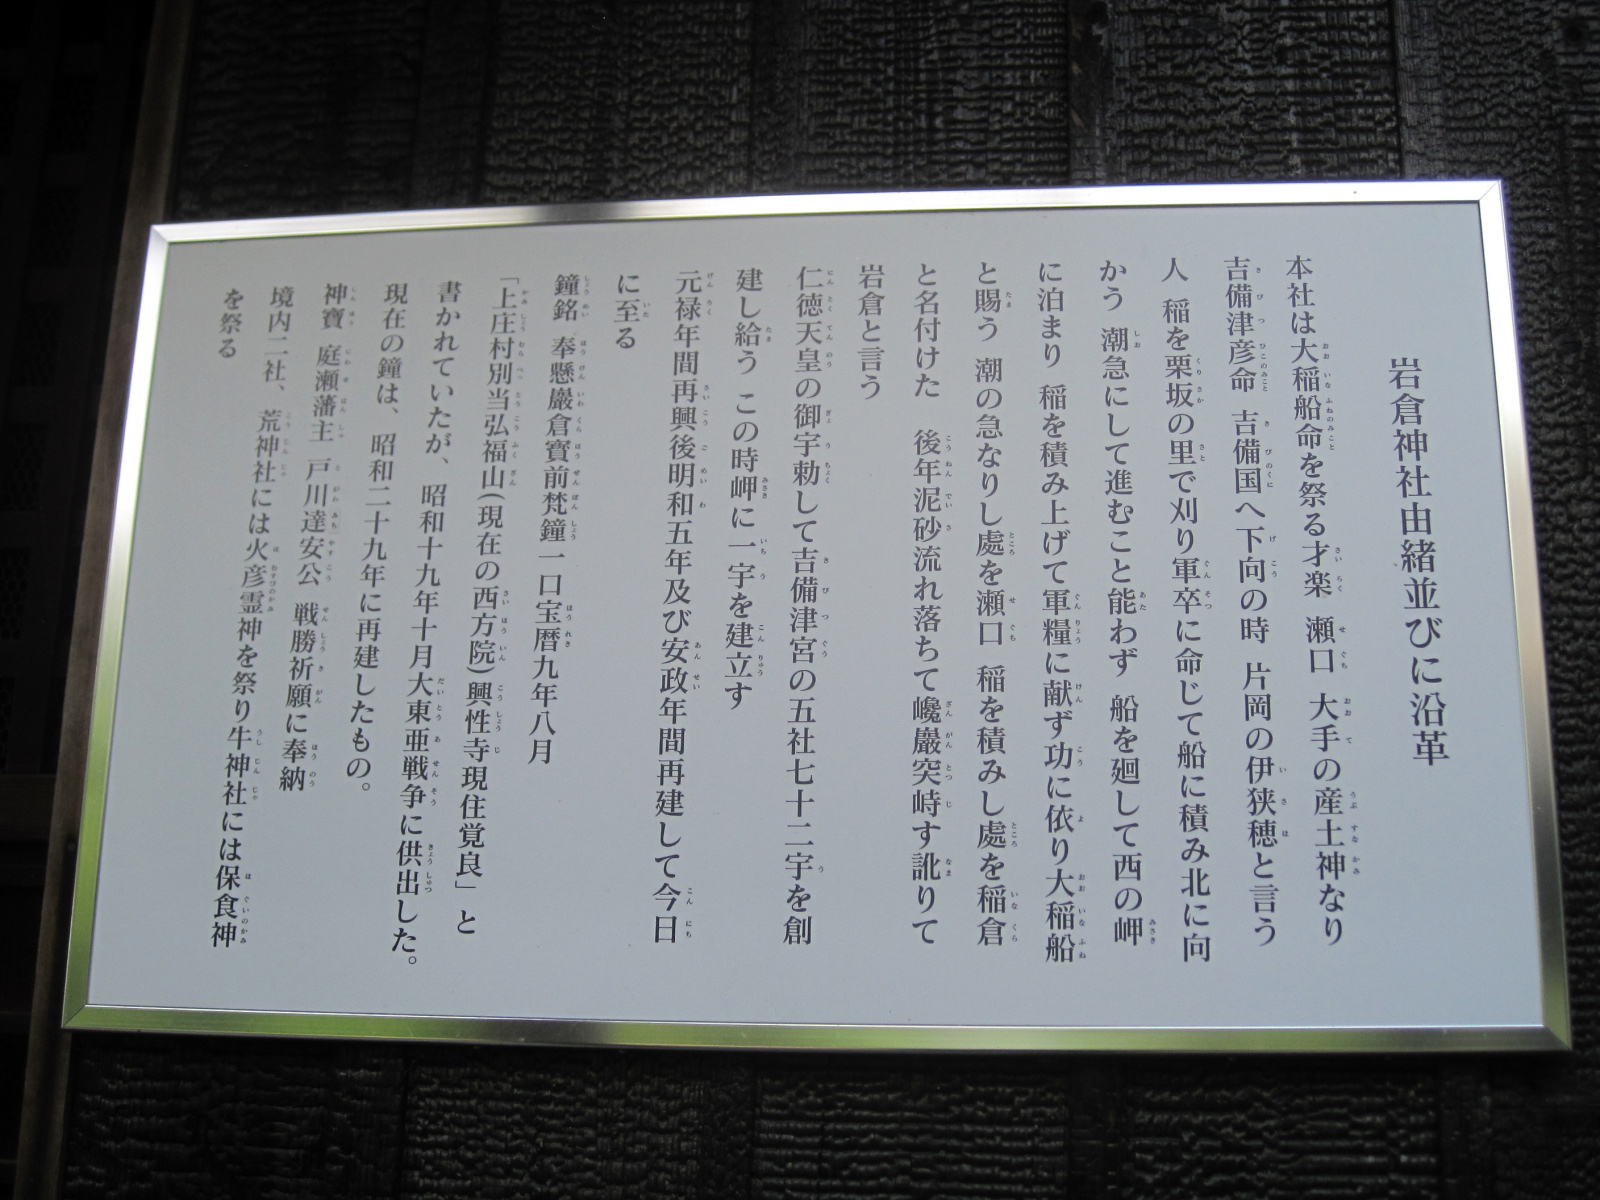 岩倉神社由緒並びに沿革
本社は大稲船命を祭る才楽 瀬口 大手の産土神なり
吉備津彦命 吉備国へ下向の時 片岡の伊狭穂と言う
人 稲を栗坂の里で刈り軍卒に命じて船に積み北に向
かう 潮急にして進むこと能わず 船を廻して西の岬
に泊まり 稲を積み上げて軍糧に献ず功に依り大稲船
と賜う 潮の急なりし處を瀬口 稲を積みし處を稲倉
と名付けた 後年泥砂流れ落ちて巉巖突峙す訛りて
岩倉と言う
仁徳天皇の御宇勅して吉備津宮の五社七十二宇を創
建し給う この時岬に一宇を建立す
元禄年間再興後明和五年及び安政年間再建して今日
に至る
鐘銘 奉懸巖倉寶前梵鐘一口宝暦九年八月
「上庄村別当弘福山(現在の西方院)興性寺現住覚良」と
書かれていたが、昭和十九年十月大東亜戦争に供出した。
現在の鐘は、昭和二十九年に再建したもの。
神寶 庭瀬藩主 戸川達安公 戦勝祈願に奉納
境内二社、荒神社には火彦霊神を祭り牛神社には保食神
を祭る